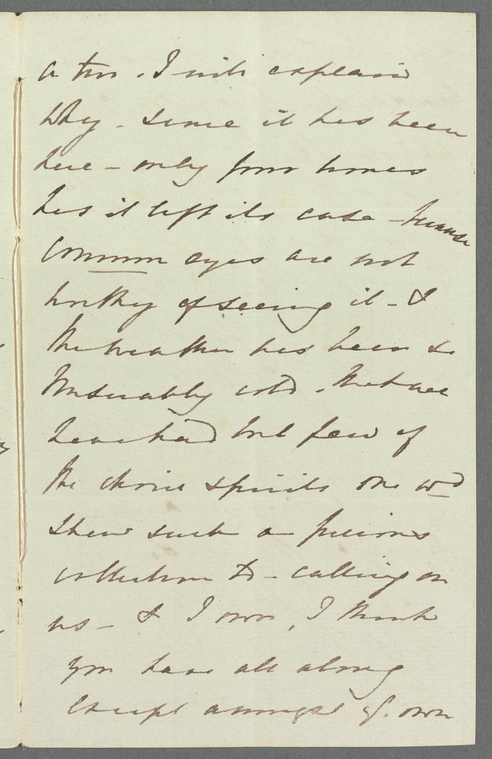 a two. I will explain
why - since it has been
here - only four times
has it left its case - because
common eyes are not
worthy of seeing it - &
the weather has been so
miserably cold - that we
have had but few of
the choice spirits one wd
shew such a precious
collection to - calling on
us - & I own, I think
you have all along
except amongst yr. own